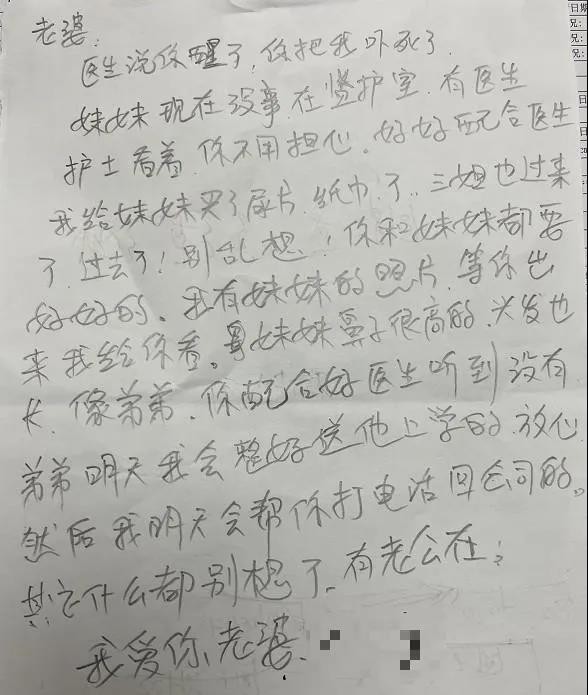 日期
况:
况:
况:
老婆:
医生说你醒了,你把我吓死了.
妹妹现在没事.在监护室.有医生
护士看着.你不用担心.好好配合医生
我给妹妹买了尿片.纸巾了..三姐也过来
了.过去了!别乱想!你和妹妹都要
好好的。我有妹妹的照片.等你出
来我给你看。妹妹鼻子很高的.头发也
长.像弟弟.你配合好医生听到没有
弟弟明天我会整好送他上学的.放心
然后我明天会帮你打电话回公司的。
其它什么都别想了.有老公在;
我爱你、老婆.